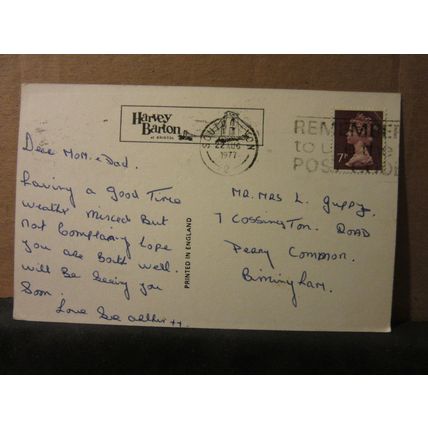 Harvey
Barton
of BRISTOL
22 AUG
1977
REMEMBER
to USE THE
POSTCODE
7P
Dear Mom & Dad.
having a good Time
weather Mixced But
not Complaining hope
you are Both well.
will Be Seeing you
Soon.
Love
PRINTED IN ENGLAND
MR. MRS L. Guppy.
7 COSSINGTON ROAD
Perry Common.
Birmingham.